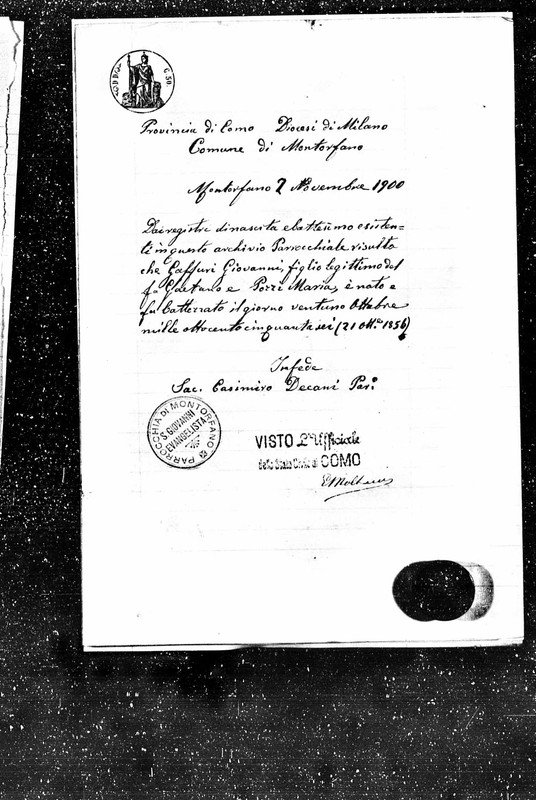 C. 50
Provincia di Como Diocesi di Milano
Comune di Montorfano
Montorfano 2 Novembre 1900
Dai registri di nascita e battesimo esisten=
ti in questo archivio Parrocchiale risulta
che Gaffuri Giovanni, figlio legittimo del
fu Gaetano e Pozzi Maria, è nato e
fu battezzato il giorno ventuno Ottobre
mille ottocento cinquanta sei (21 Ott.e 1856)
In fede
Sac. Casimiro Decani Par.o
PARROCCHIA DI MONTORFANO
S. GIOVANNI
EVANGELISTA
VISTO L'Ufficiale
dello Stato Civile di COMO